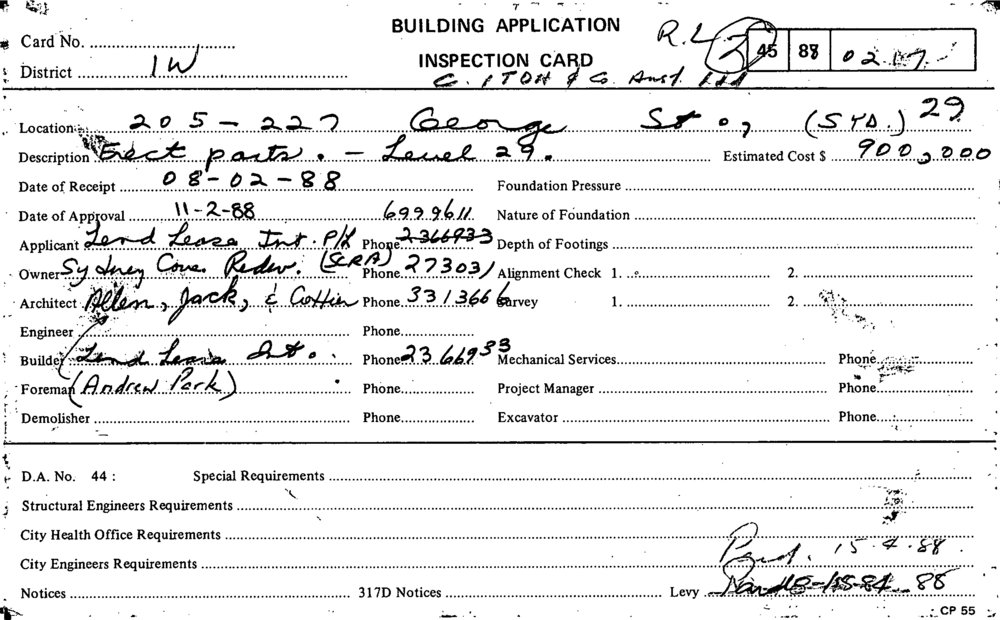 BUILDING APPLICATION
INSPECTION CARD
R.L. 2 45 88 02 17
Card No.
District 1W
C. ITOH & Co. Aust. Ltd
Location 205-227 George St., (SYD.) 29
Description Erect parts. - Level 29. Estimated Cost $ 900,000
Date of Receipt 08-02-88 Foundation Pressure
Date of Approval 11-2-88 6999611 Nature of Foundation
Applicant Lend Lease Int. P/L Phone 2366933 Depth of Footings
Owner Sydney Cove. Redev. (SCRA) Phone 273031 Alignment Check 1. 2.
Architect Allen, Jack, & Cottier Phone 3313666 Survey 1. 2.
Engineer Phone
Builder Lend Lease Int. Phone 23.66933 Mechanical Services Phone
Foreman (Andrew Park) Phone Project Manager Phone
Demolisher Phone Excavator Phone
D.A. No. 44 : Special Requirements
Structural Engineers Requirements
City Health Office Requirements
City Engineers Requirements 15.4.88.
Notices 317D Notices Levy 88
CP 55